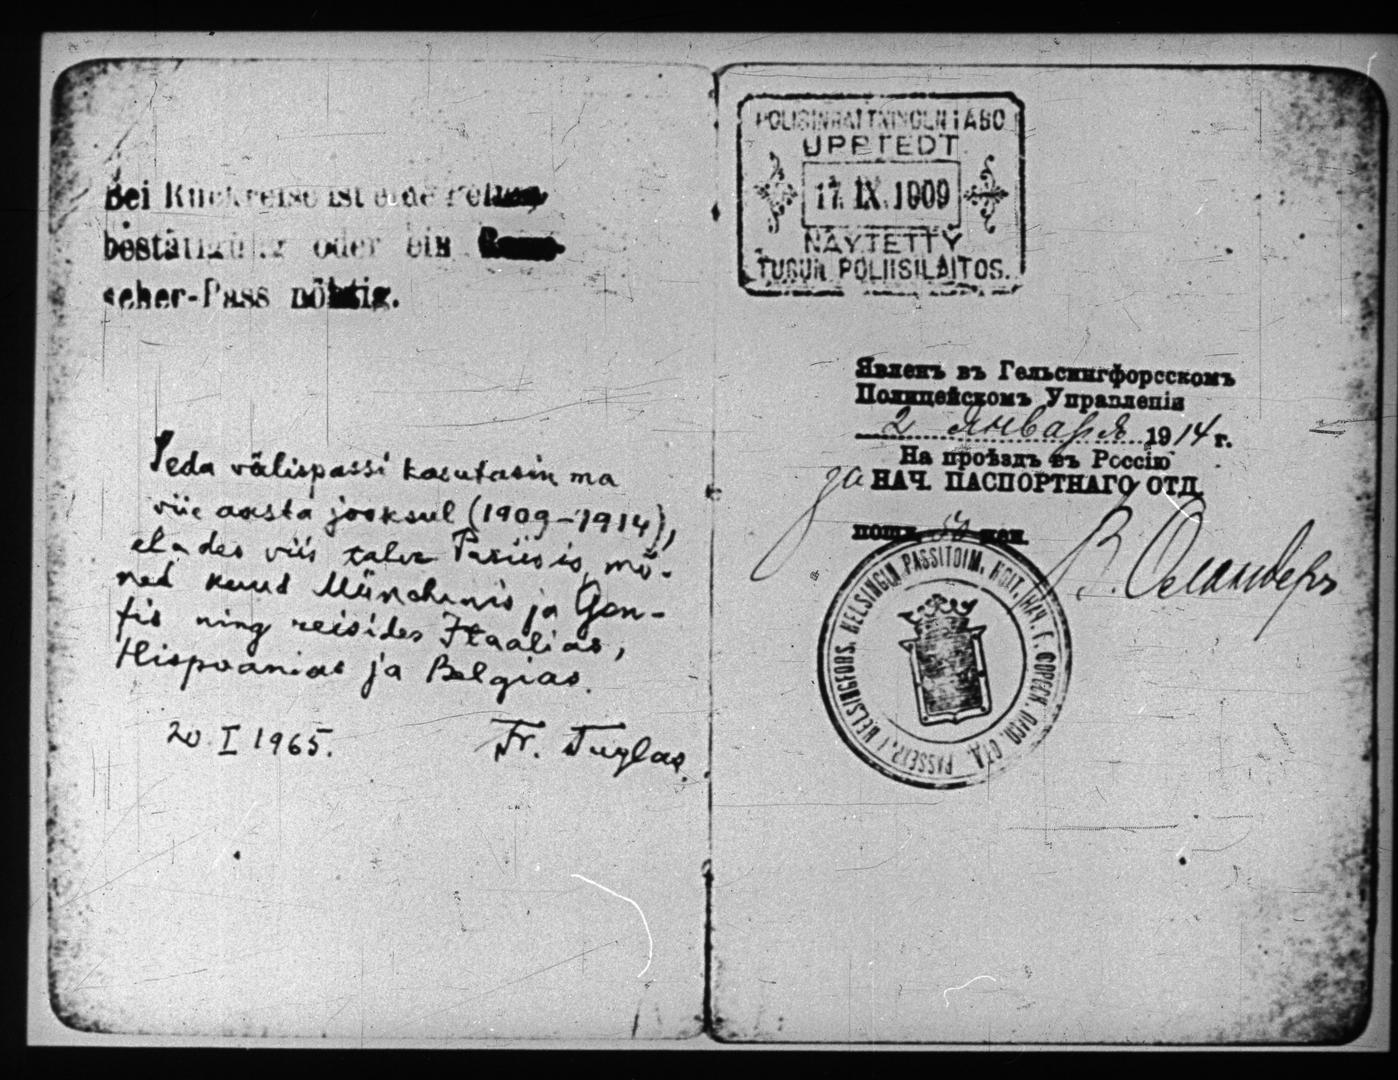 Bei Rückreise ist eine
bestätigung oder ein
scher-Pass nöhtig.
Seda välispassi kasutasin ma
viie aasta jooksul (1909–1914),
elades viis talve Pariisis, mõ-
ned kuud Münchenis ja Gen-
fis ning reisides Itaalias,
Hispaanias ja Belgias.
20 I 1965.
Fr. Tuglas.
POLISINRÄTTNINGEN I ÅBO
UPPTEDT
17. IX. 1909
NÄYTETTY
TURUN POLIISILAITOS.
Явленъ въ Гельсингфорсскомъ
Полицейскомъ Управленіи
2 января 1914 г.
На проѣздъ въ Россію
за НАЧ. ПАСПОРТНАГО ОТД
пошл. 50 пен.
HELSINGIN PASSITOIM. Г. ГОРССК. ПАСП. ОТД. PASSEXP. I HELSINGFORS.